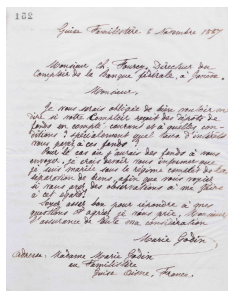 132
Guise Familistère 5 Novembre 1887
Monsieur Ch. Fourcy, Directeur du
Comptoir de la Banque fédérale, à
Monsieur,
Je vous serais obligée de bien vouloir me
dire si votre Comptoir reçoit des dépôts de
fonds en compte-courant et à quelles con-
ditions ; spécialement quel taux d'intérêts
vous payez à ces fonds ?
Pour le cas où j'aurais des fonds à vous
envoyer, je crois devoir vous informer que
je suis mariée sous le régime de la
séparation de biens afin que vous voyiez
si vous avez des observations à me faire
à cet égard.
Soyez assez bon pour répondre à mes
questions et agréez, je vous prie, Monsieur
l'assurance de toute ma considération
Marie Godin
Adresse: Madame Marie Godin
au Familistère
Guise Aisne, France.